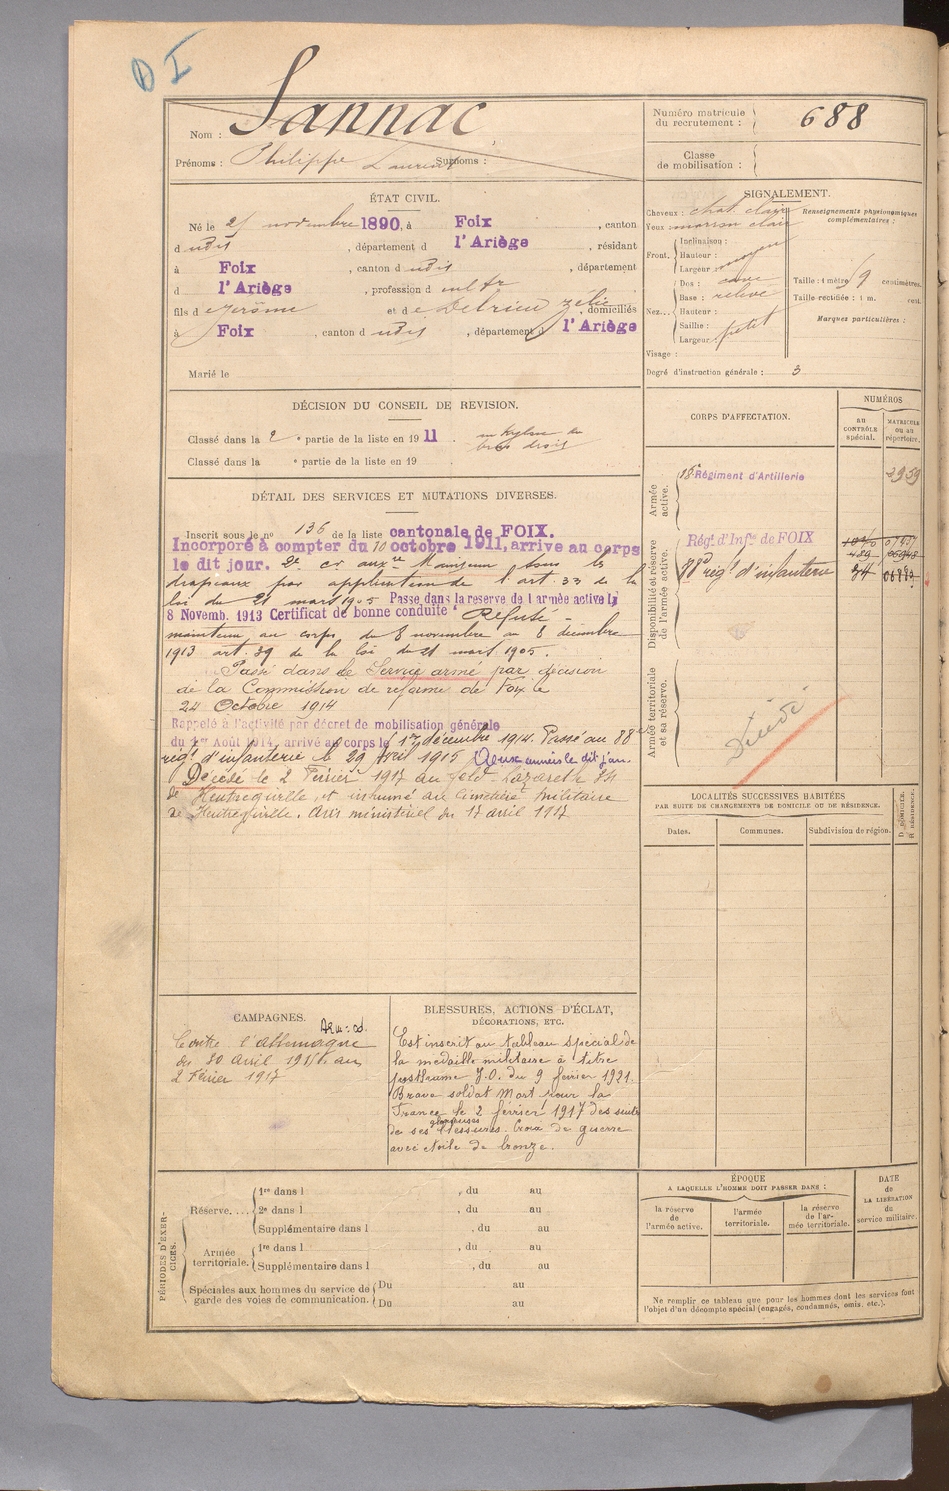 D I
Nom : Sannac
Prénoms : Philippe Laurent Surnoms :
Numéro matricule du recrutement : 688
Classe de mobilisation :
ÉTAT CIVIL.
Né le 25 novembre 1890, à Foix, canton
d udit, département d l'Ariège, résidant
à Foix, canton d udit, département
d l'Ariège, profession d cultr
fils d e Jérôme et d e Debrieu Zélie, domiciliés
à Foix, canton d udit, département d l'Ariège
Marié le
SIGNALEMENT.
Cheveux : chat. clair
Yeux : marron clair
Front. Inclinaison :
Hauteur : moyen
Largeur :
Nez... Dos : cave
Base : relevé
Hauteur :
Saillie : petit
Largeur :
Visage :
Renseignements physionomiques complémentaires :
Taille : 1 mètre 59 centimètres.
Taille rectifiée : 1 m. cent.
Marques particulières :
Degré d'instruction générale : 3
DÉCISION DU CONSEIL DE REVISION.
Classé dans la 2e partie de la liste en 1911.
bras droit
Classé dans la e partie de la liste en 19
DÉTAIL DES SERVICES ET MUTATIONS DIVERSES.
Inscrit sous le no 136 de la liste cantonale de FOIX.
Incorporé à compter du 10 octobre 1911, arrive au corps
le dit jour. 2e cr auxre Maintenu sous les
drapeaux par application de l'art 33 de la
loi du 21 mars 1905 Passe dans la reserve de l'armée active le
8 Novemb. 1913 Certificat de bonne conduite " Refusé -
maintenu au corps du 8 novembre au 8 décembre
1913 art. 39 de la loi du 21 mars 1905.
Passé dans le Service armé par décision
de la Commission de réforme de Foix le
24 Octobre 1914
Rappelé à l'activité par décret de mobilisation générale
du 1er Août 1914, arrivé au corps le 1er décembre 1914. Passé au 88e
régt d'infanterie le 29 Avril 1915 Aux armées le dit jour.
Décédé le 2 Février 1917 au feld Lazareth
de Heutregiville et inhumé au Cimetière militaire
de Heutregiville. Avis ministériel du 17 avril 1917
CORPS D'AFFECTATION.
NUMÉROS
au CONTRÔLE spécial.
MATRICULE ou au répertoire.
Armée active.
18e Régiment d'Artillerie 3959
Disponibilité et réserve de l'armée active.
Régt. d'Infie de FOIX
88e régt d'infanterie
Armée territoriale et sa réserve.
Décédé
LOCALITÉS SUCCESSIVES HABITÉES
PAR SUITE DE CHANGEMENTS DE DOMICILE OU DE RÉSIDENCE.
Dates. Communes. Subdivision de région.
D. DOMICILE. R. RÉSIDENCE.
CAMPAGNES.
Contre l'Allemagne
du 30 avril 1915 au
2 Février 1917
BLESSURES, ACTIONS D'ÉCLAT,
DÉCORATIONS, ETC.
Est inscrit au tableau spécial de
la médaille militaire à titre
posthume J.O. du 9 février 1921.
Brave soldat Mort pour la
France le 2 février 1917 des suites
de ses glorieuses blessures. Croix de guerre
avec étoile de bronze.
PÉRIODES D'EXERCICES.
Réserve.... 1re dans l , du au
2e dans l , du au
Supplémentaire dans l , du au
Armée territoriale. 1re dans l , du au
Supplémentaire dans l , du au
Spéciales aux hommes du service de garde des voies de communication. Du au
Du au
ÉPOQUE
A LAQUELLE L'HOMME DOIT PASSER DANS :
la réserve de l'armée active.
l'armée territoriale.
la réserve de l'armée territoriale.
DATE de LA LIBÉRATION du service militaire.
Ne remplir ce tableau que pour les hommes dont les services font
l'objet d'un décompte spécial (engagés, condamnés, omis, etc.).